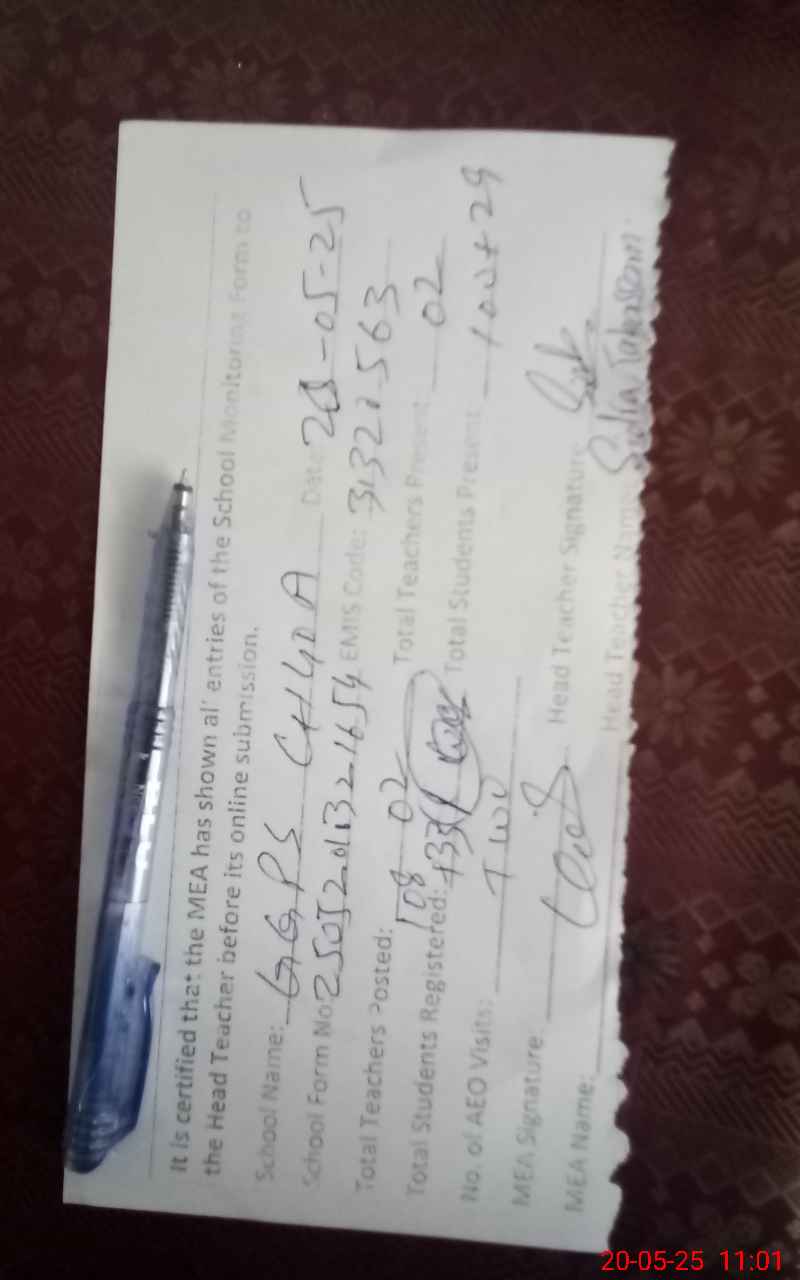 It is certified that the MEA has shown all entries of the School Monitoring Form to
the Head Teacher before its online submission.
School Name: GGPS Date: 20-05-25
School Form No: EMIS Code: 31321563
Total Teachers Posted: 02 Total Teachers Present: 02
Total Students Registered: 108 +33 Total Students Present: 100+29
No. of AEO Visits: Two
MEA Signature: Head Teacher Signature
MEA Name: Head Teacher Name Sadia Tabassum
20-05-25 11:01